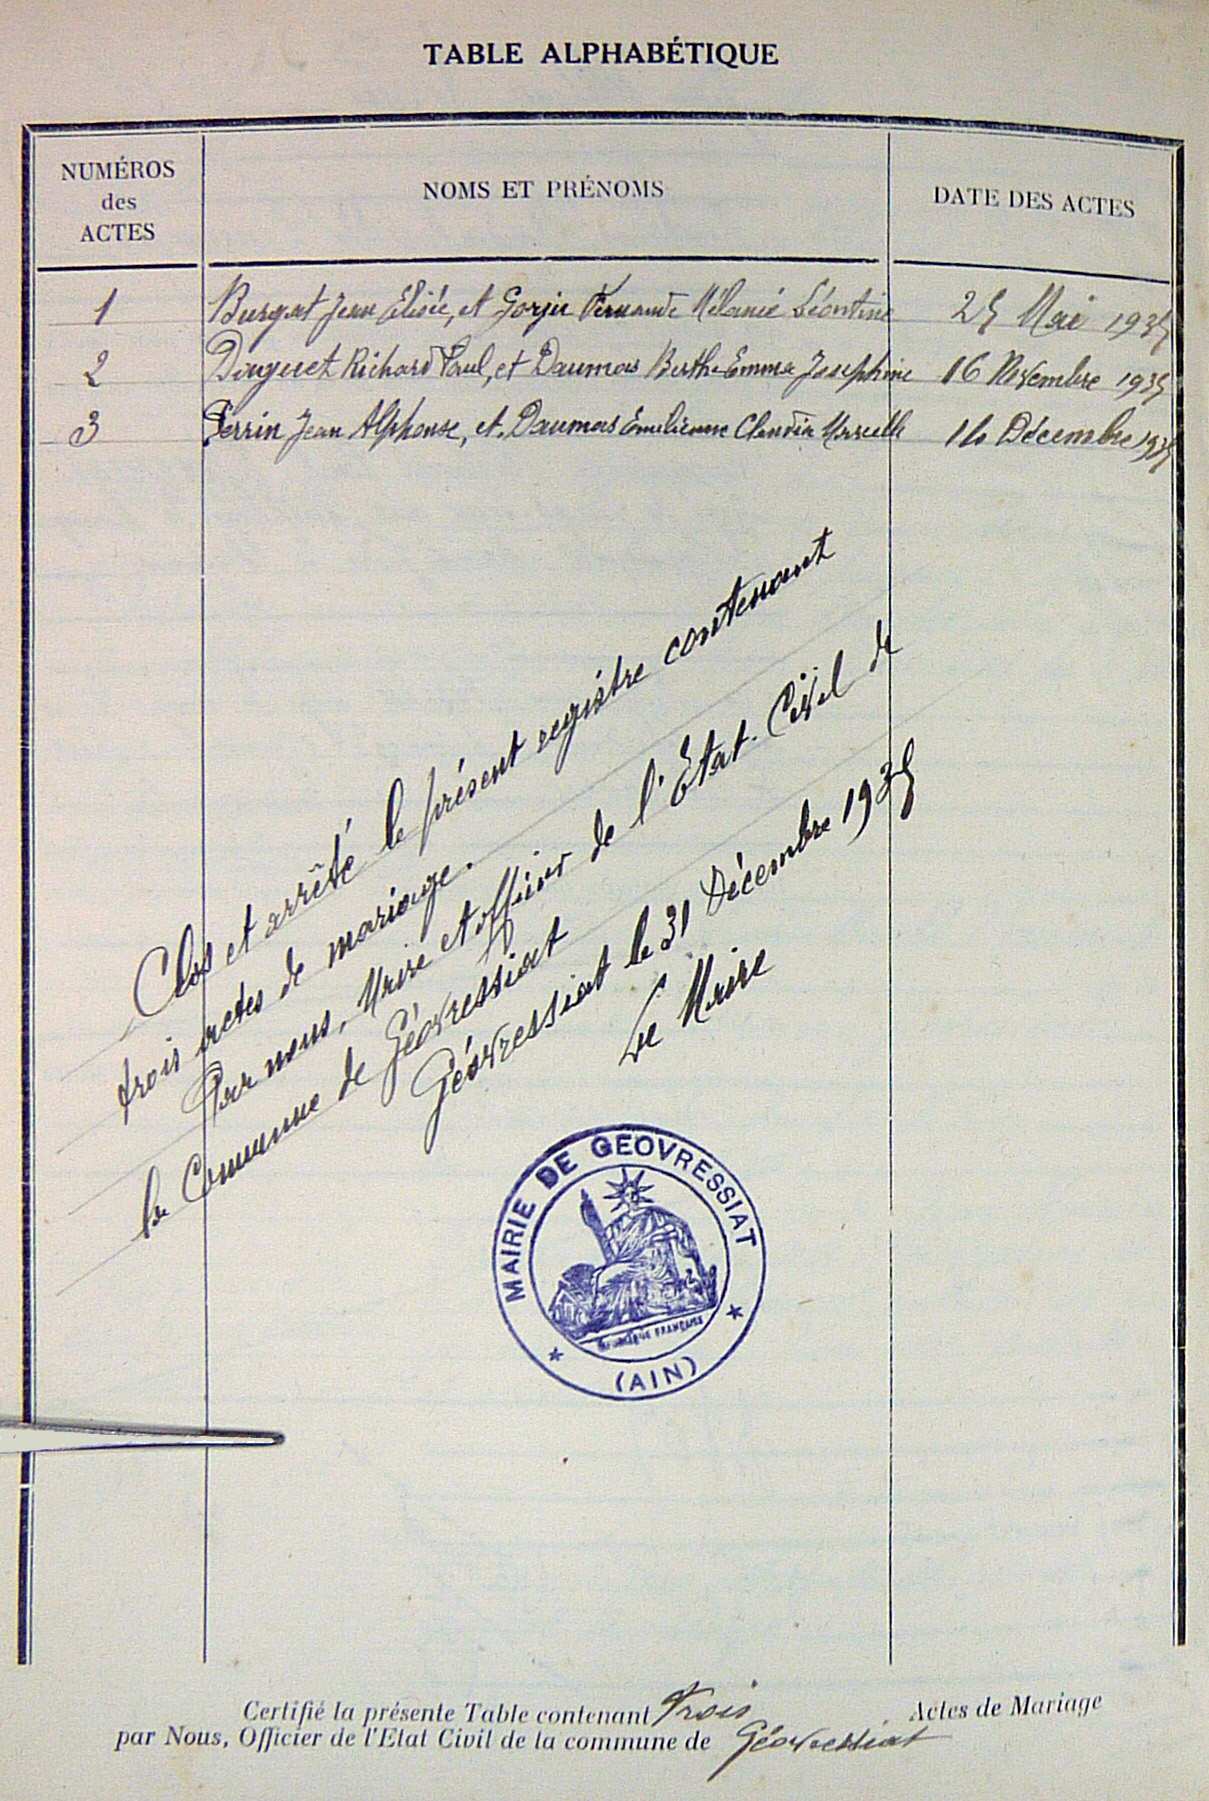 TABLE ALPHABÉTIQUE
NUMÉROS des ACTES
NOMS ET PRÉNOMS
DATE DES ACTES
1 Burgat Jean Elisée, et Gorju Fernande Mélanie Léontine 25 Mai 1935
2 Richard Paul, et Daumas Berthe Emma Joséphine 16 Novembre 1935
3 Perrin Jean Alphonse, et Daumas Emilienne Claudia Marcelle Décembre 1935
Clos et arrêté le présent registre contenant
trois actes de mariage.
Par nous, Maire et officier de l'Etat-Civil de
la Commune de Géovressiat
Géovressiat le 31 Décembre 1935
Le Maire
MAIRIE DE GEOVRESSIAT
RÉPUBLIQUE FRANÇAISE
(AIN)
Certifié la présente Table contenant Trois Actes de Mariage
par Nous, Officier de l'Etat Civil de la commune de Géovressiat